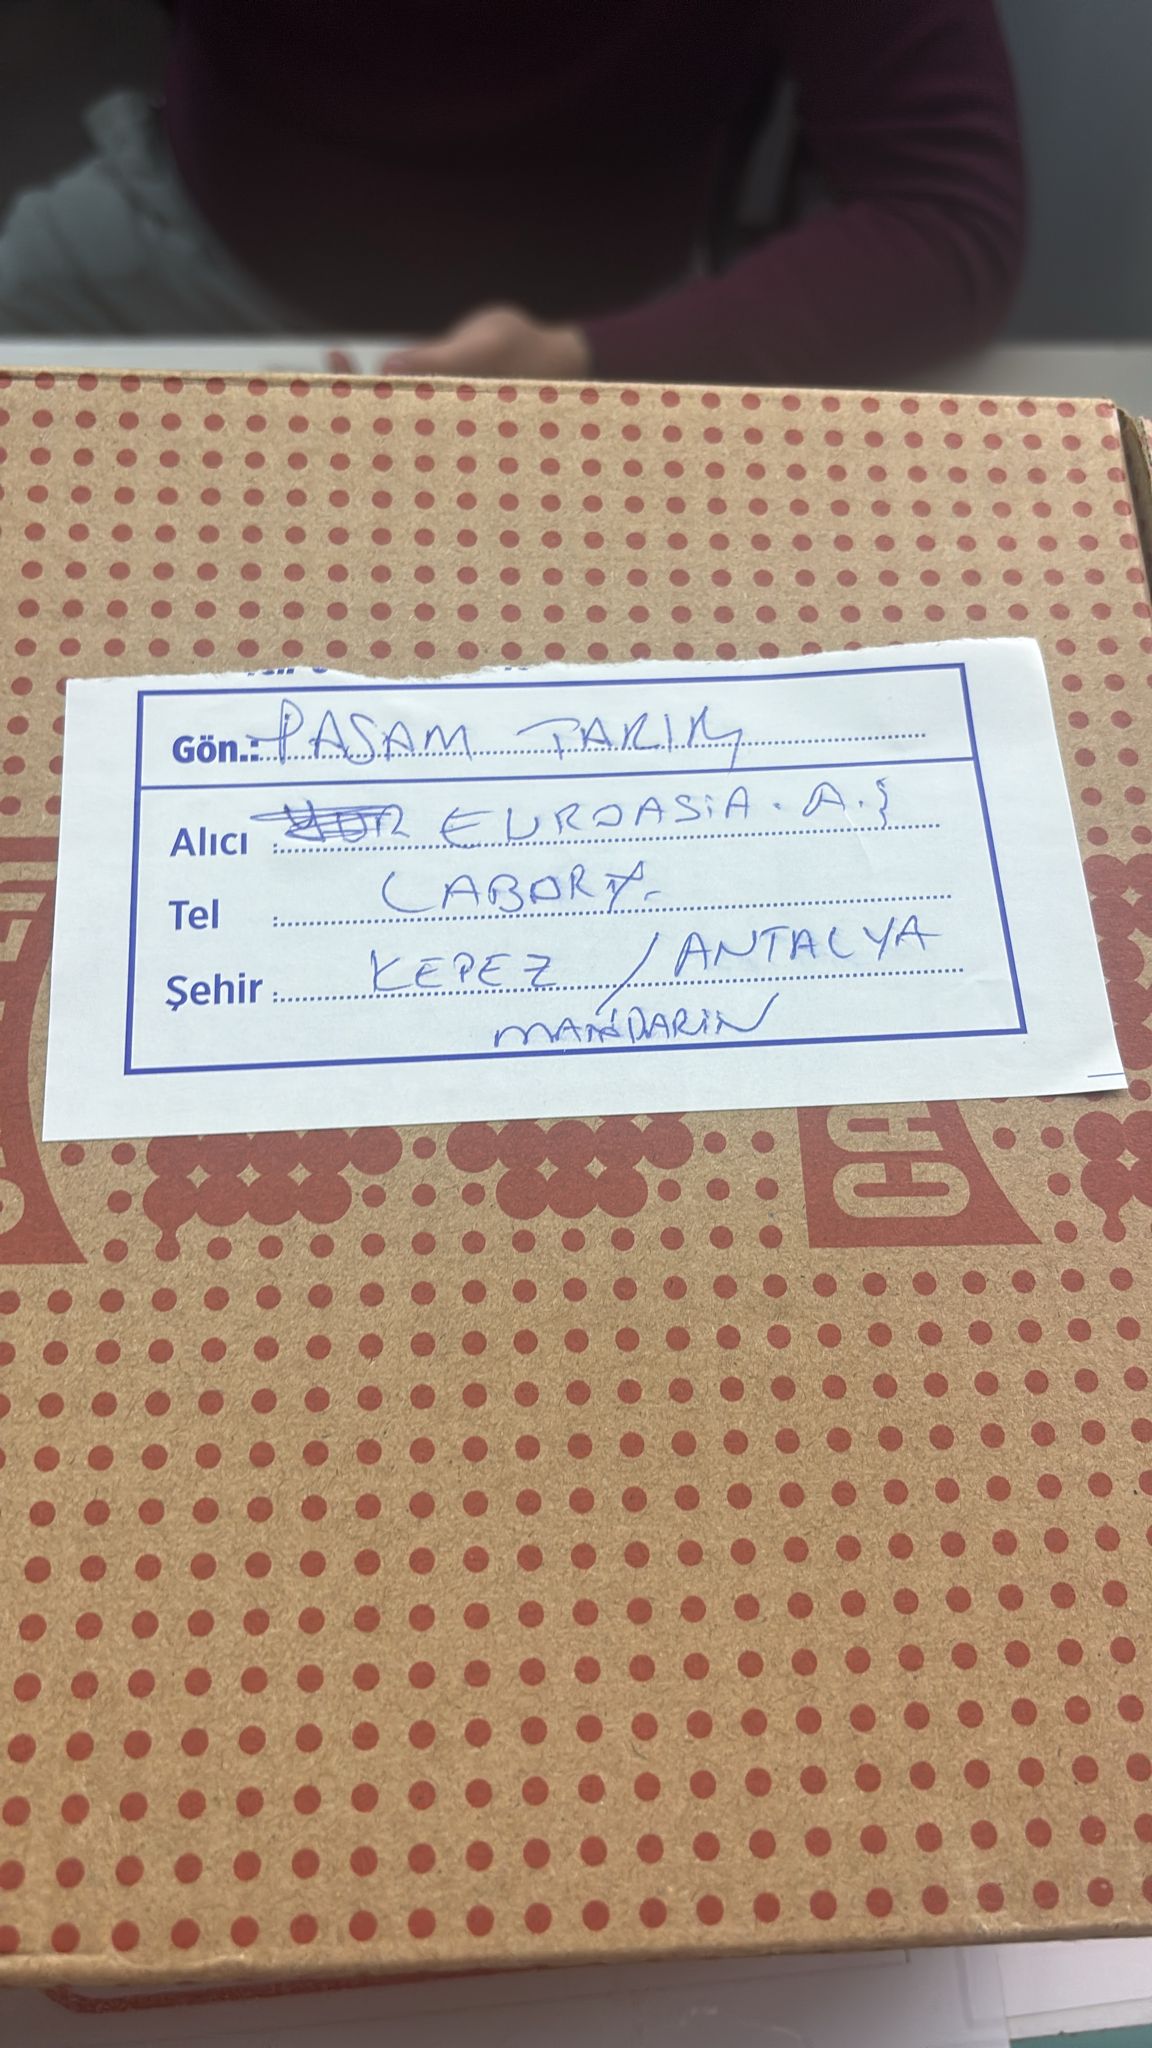 Gön.: PASAM TARIM
Alıcı : EUROASİA. A.Ş
Tel : LABORT.
Şehir : KEPEZ / ANTALYA
MANDARİN